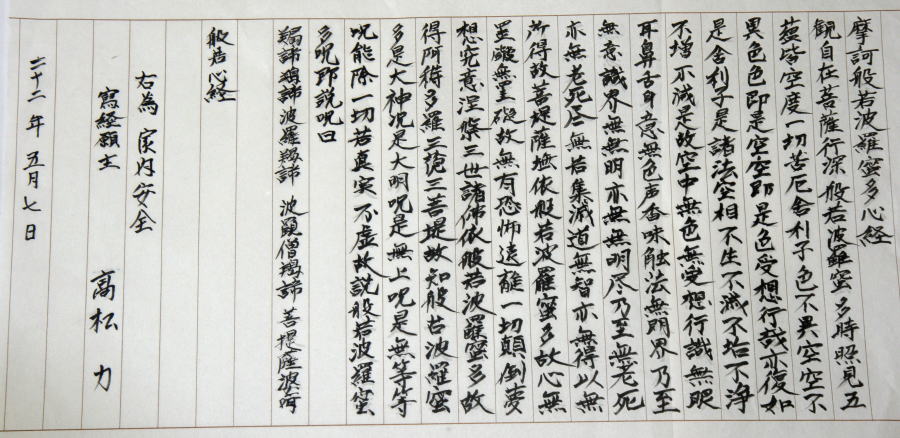 摩訶般若波羅蜜多心経
観自在菩薩行深般若波羅蜜多時照見五
蘊皆空度一切苦厄舍利子色不異空空不
異色色即是空空即是色受想行識亦復如
是舍利子是諸法空相不生不滅不垢不浄
不増不減是故空中無色無受想行識無眼
耳鼻舌身意無色声香味触法無眼界乃至
無意識界無無明亦無無明尽乃至無老死
亦無老死尽無苦集滅道無智亦無得以無
所得故菩提薩埵依般若波羅蜜多故心無
罣礙無罣礙故無有恐怖遠離一切顛倒夢
想究竟涅槃三世諸佛依般若波羅蜜多故
得阿耨多羅三藐三菩提故知般若波羅蜜
多是大神呪是大明呪是無上呪是無等等
呪能除一切苦真実不虚故説般若波羅蜜
多呪即説呪曰
羯諦羯諦波羅羯諦 波羅僧羯諦 菩提薩婆訶
般若心経
右為 家内安全
寫経願主 高松 力
二十二年 五月七日